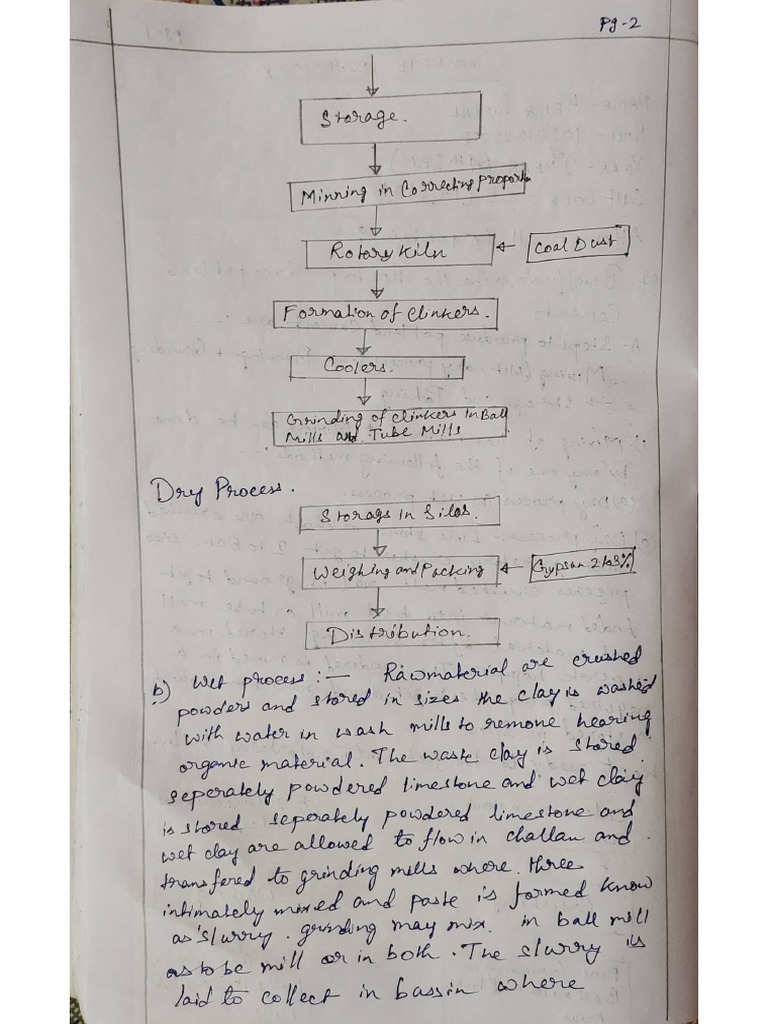 Pg-2
Storage.
Minning in Correcting Proportn
Rotary Kiln
Coal Dust
Formation of Clinkers.
Coolers.
Grinding of Clinkers in Ball
Mills and Tube Mills
Dry Process.
Storags in Silos.
Weighing and Packing
Gypsum 2 to 3%
Distribution.
b) Wet process :- Rawmaterial are crushed
powders and stored in sizes the clay is washed
with water in wash mills to remone hearing
organic material. The waste clay is stored
seperately powdered limestone and wet clay
is stored seperately powdered limestone and
wet clay are allowed to flow in challau and
transfered to grinding mills where three
intimately mixed and paste is formed know
as 'slurry. grinding may mix. in ball mill
as to be mill or in both. The slurry is
laid to collect in bassin where